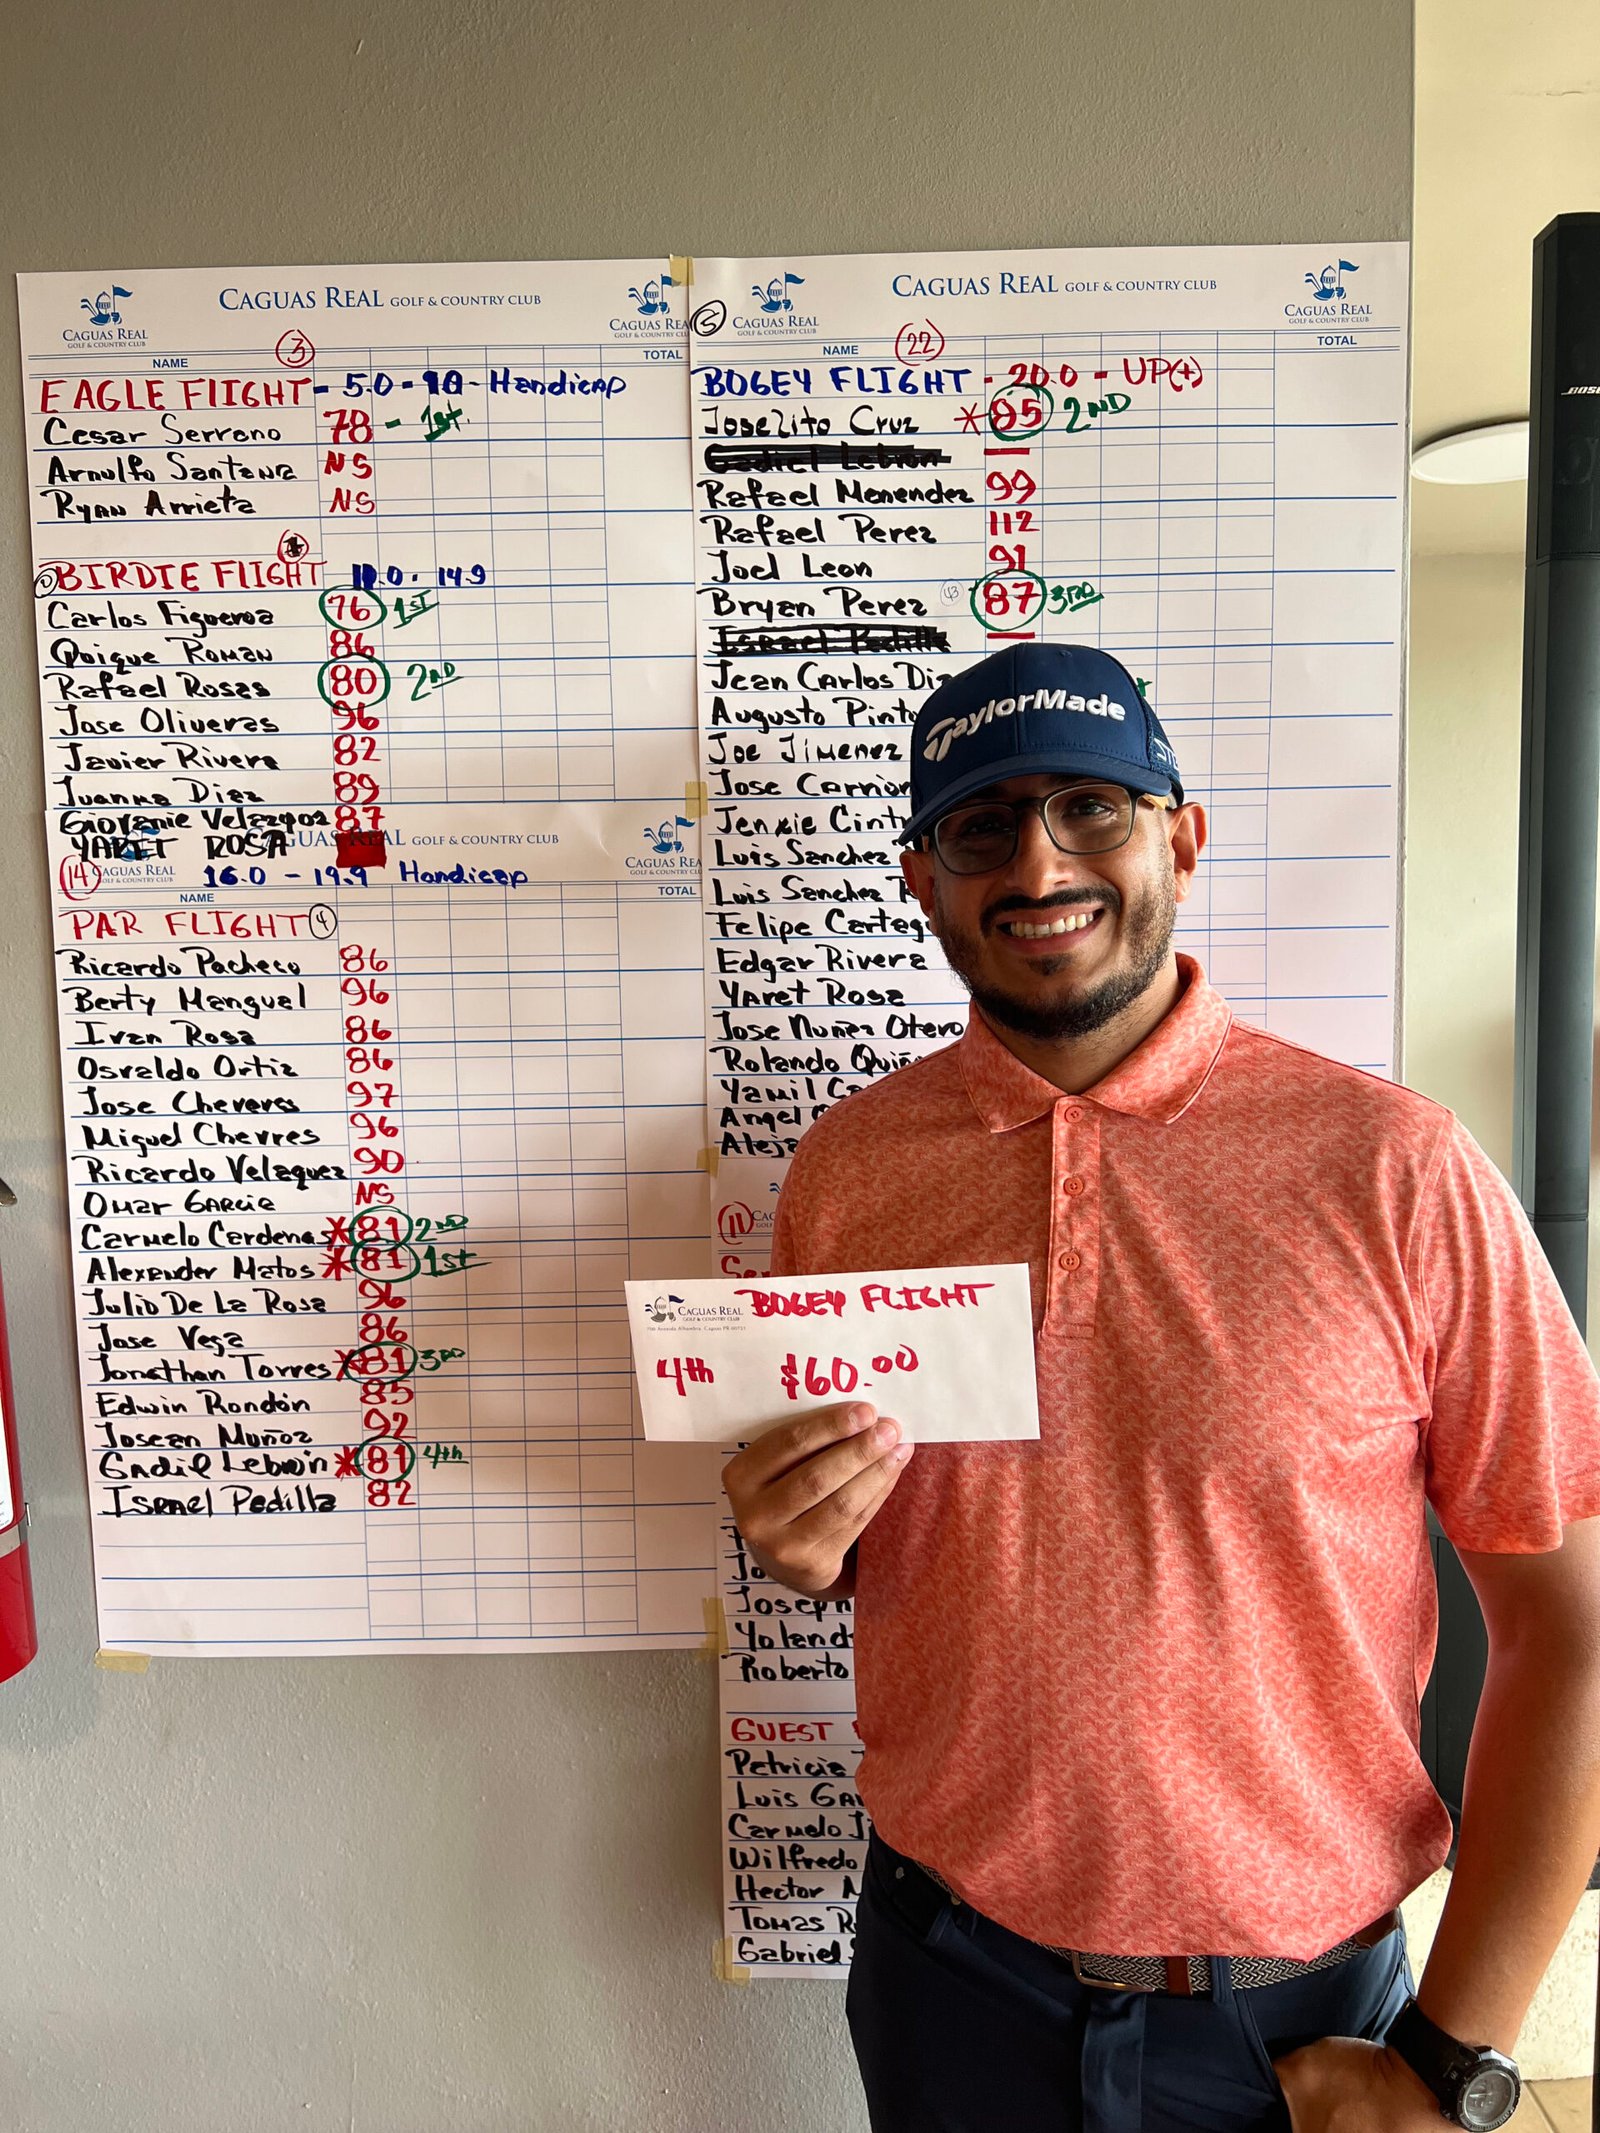 CAGUAS REAL GOLF & COUNTRY CLUB
CAGUAS REAL
GOLF & COUNTRY CLUB
CAGUAS REA
3
NAME TOTAL
EAGLE FLIGHT - 5.0 - 10 - Handicap
Cesar Serrano 78 - 1st.
Arnulfo Santana NS
Ryan Arrieta NS
BIRDIE FLIGHT 14.9
Carlos Figueroa 76 1ST
Quique Roman 86
Rafael Rosas 80 2ND
Jose Oliveras 96
Javier Rivera 82
Juanma Diaz 89
Giovanie Velazquez 87
YARET ROSA
GUAS REAL GOLF & COUNTRY CLUB
CAGUAS REAL
GOLF & COUNTRY CLUB
14 16.0 - 19.9 Handicap
NAME TOTAL
PAR FLIGHT 4
Ricardo Pacheco 86
Berty Mangual 96
Ivan Rosa 86
Osvaldo Ortiz 86
Jose Cheveres 97
Miguel Chevres 96
Ricardo Velazquez 90
Omar Garcia NS
Carmelo Cardenas *81 2ND
Alexander Matos *81 1st
Julio De La Rosa 96
Jose Vega 86
Jonathan Torres *81 3RD
Edwin Rondón 85
Josean Muñoz 92
Gadiel Lebrón *81 4th
Israel Pedilla 82
CAGUAS REAL GOLF & COUNTRY CLUB
5
CAGUAS REAL
GOLF & COUNTRY CLUB
CAGUAS REAL
GOLF & COUNTRY CLUB
22
NAME TOTAL
BOGEY FLIGHT - 20.0 - UP(+)
Joselito Cruz *85 2ND
Gadiel Lebron
Rafael Menendez 99
Rafael Perez 112
Joel Leon 91
Bryan Perez 43 87 3RD
Israel Pedilla
Jean Carlos Dia
Augusto Pinto
Joe Jimenez
Jose Carrion
Jenxie Cintr
Luis Sanchez
Luis Sanchez R
Felipe Cartag
Edgar Rivera
Yaret Rosa
Jose Nuñez Otero
Rolando Quiñ
Yamil Ca
Angel
Aleja
11
Jo
Joseph
Yoland
Roberto
GUEST
Patricia
Luis Gar
Carmelo Ji
Wilfredo
Hector M
Tomas R
Gabriel
TaylorMade
CAGUAS REAL
GOLF & COUNTRY CLUB
BOGEY FLIGHT
4th $60.00
BOSE